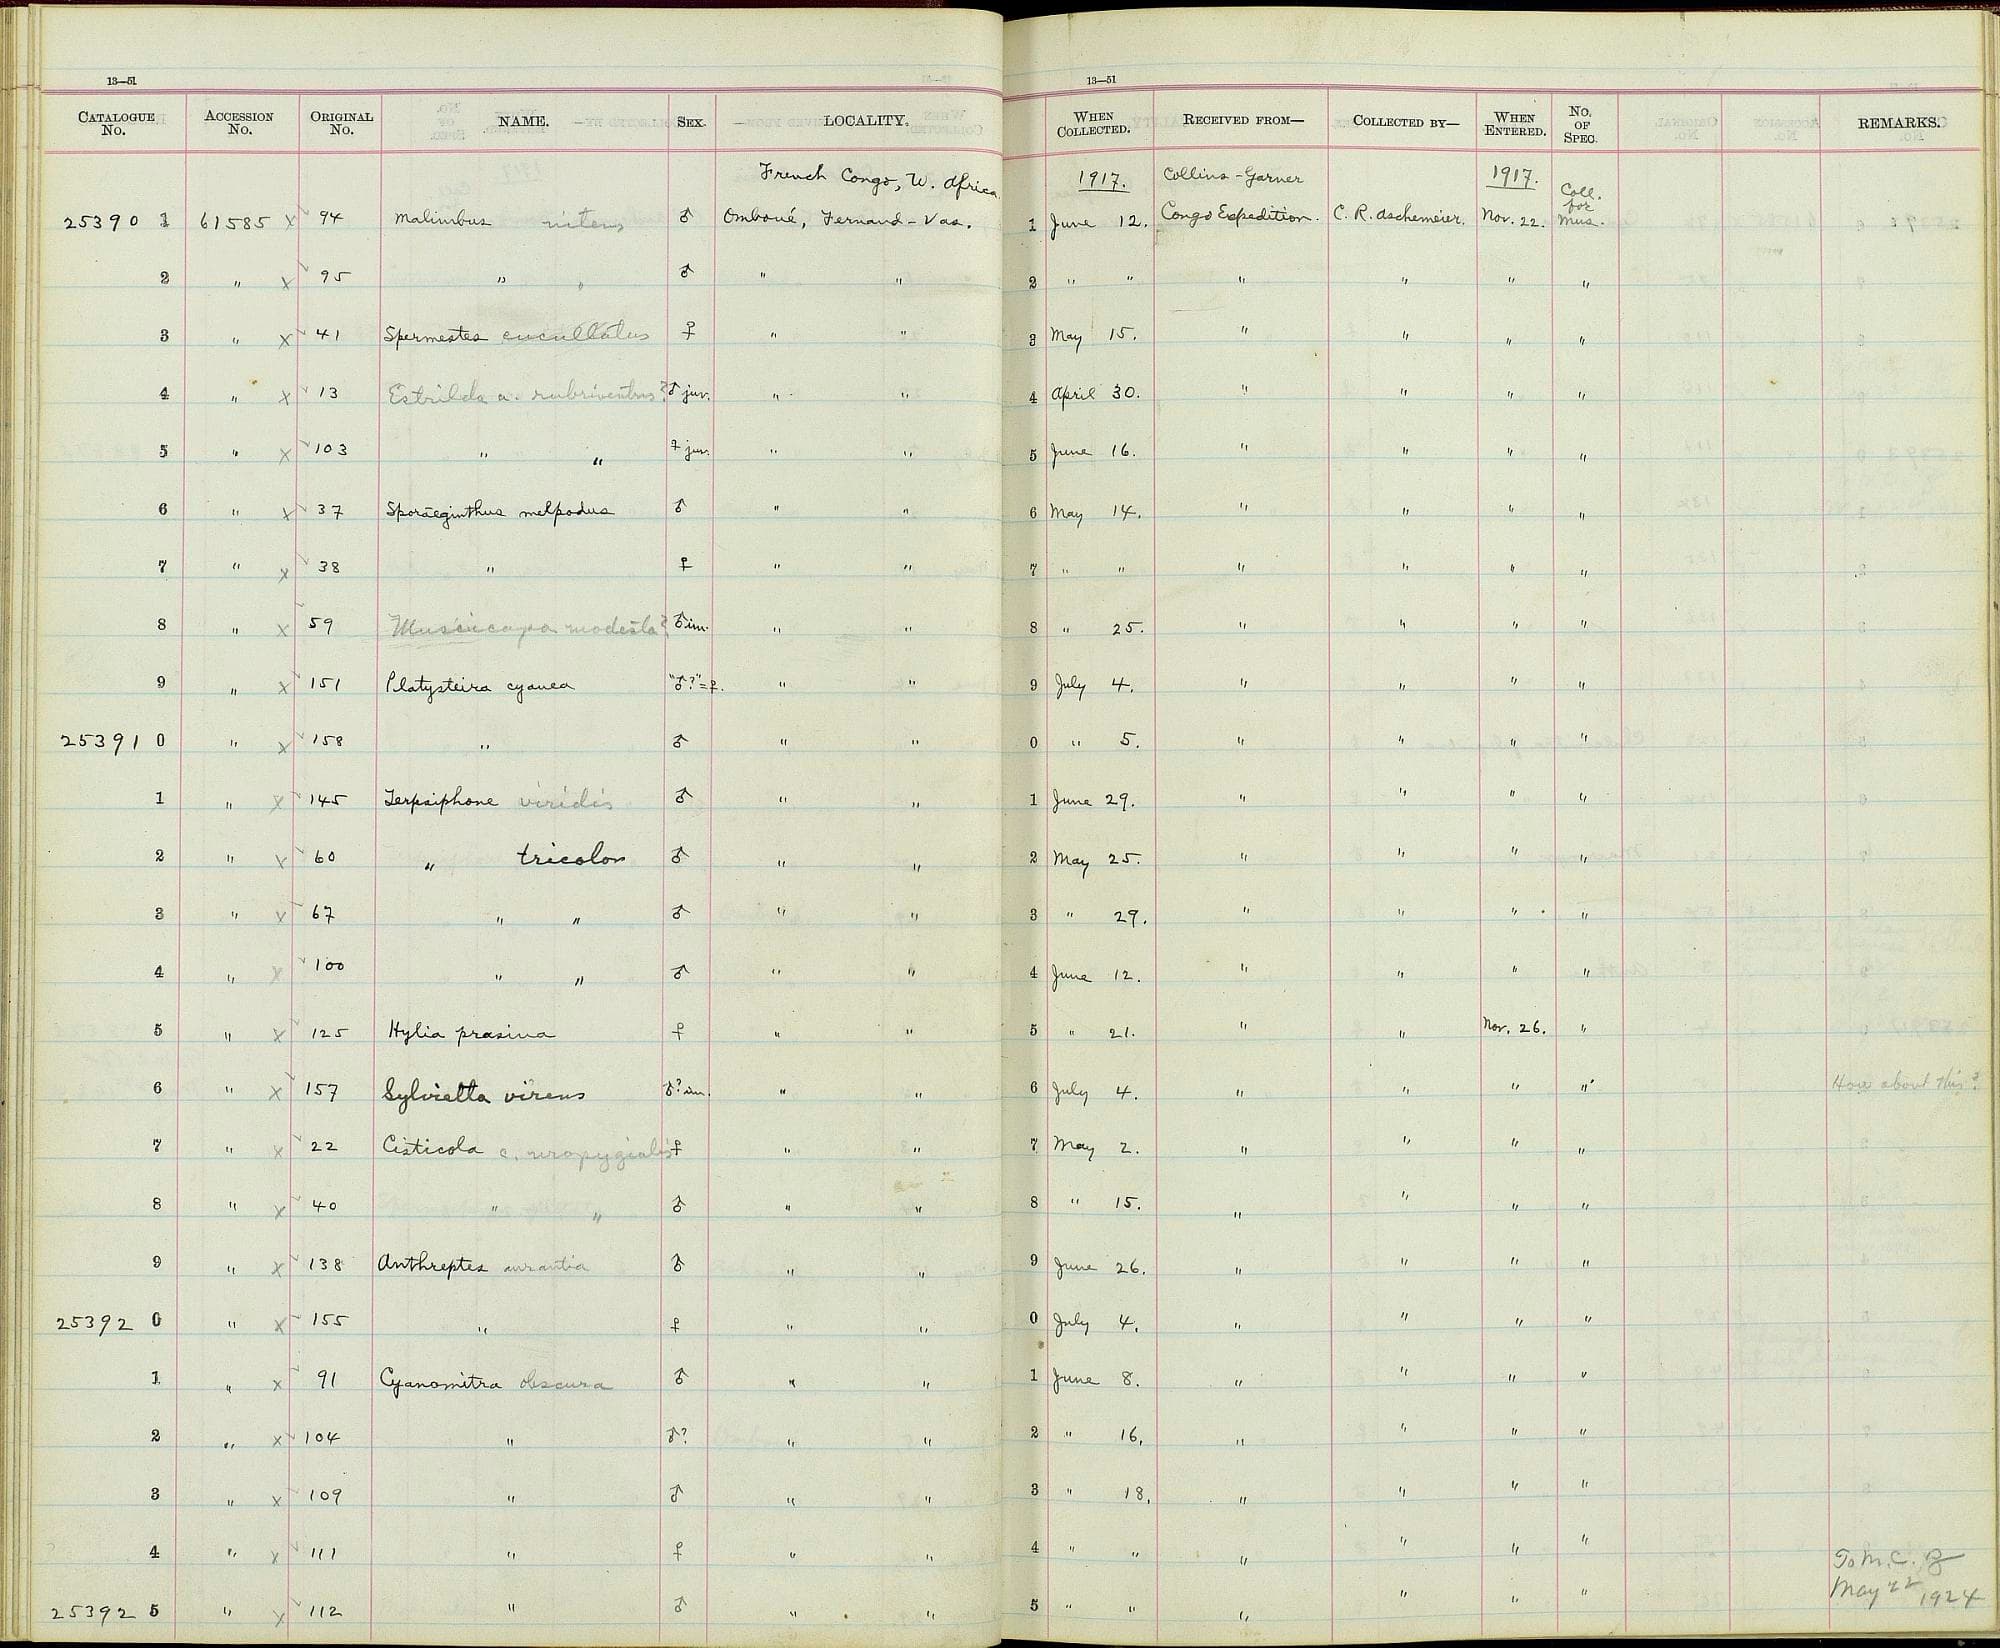 13—51
CATALOGUE No. ACCESSION No. ORIGINAL No. NAME. SEX. LOCALITY.
French Congo, W. Africa
25390 1 61585 x 94 Malimbus nitens ♂ Omboué, Fernand-Vas.
2 " x 95 " " ♂ " "
3 " x 41 Spermestes cucullatus ♀ " "
4 " x 13 Estrilda a. rubriventris? ♂ juv. " "
5 " x 103 " " ♀ juv. " "
6 " x 37 Sporaeginthus melpodus ♂ " "
7 " x 38 " ♀ " "
8 " x 59 Muscicapa modesta? ♂ im. " "
9 " x 151 Platysteira cyanea "♂?"=♀. " "
25391 0 " x 158 " ♂ " "
1 " x 145 Terpsiphone viridis ♂ " "
2 " x 60 " tricolor ♂ " "
3 " x 67 " " ♂ " "
4 " x 100 " " ♂ " "
5 " x 125 Hylia prasina ♀ " "
6 " x 157 Sylvietta virens ♂? im. " "
7 " x 22 Cisticola c. uropygialis ♀ " "
8 " x 40 " " ♂ " "
9 " x 138 Anthreptes aurantia ♂ " "
25392 0 " x 155 " ♀ " "
1 " x 91 Cyanomitra obscura ♂ " "
2 " x 104 " ♂? " "
3 " x 109 " ♂ " "
4 " x 111 " ♀ " "
25392 5 " x 112 " ♂ " "
13—51
WHEN COLLECTED. RECEIVED FROM— COLLECTED BY— WHEN ENTERED. No. OF SPEC. REMARKS.
1917. Collins-Garner 1917. Coll. for
1 June 12. Congo Expedition. C. R. Aschemeier. Nov. 22. Mus.
2 " " " " " "
3 May 15. " " " "
4 April 30. " " " "
5 June 16. " " " "
6 May 14. " " " "
7 " " " " " "
8 " 25. " " " "
9 July 4. " " " "
0 " 5. " " " "
1 June 29. " " " "
2 May 25. " " " "
3 " 29. " " " "
4 June 12. " " " "
5 " 21. " " Nov. 26. "
6 July 4. " " " " How about this?
7 May 2. " " " "
8 " 15. " " " "
9 June 26. " " " "
0 July 4. " " " "
1 June 8. " " " "
2 " 16. " " " "
3 " 18. " " " "
4 " " " " " " To M.C.Z
5 " " " " " " May 22 1924